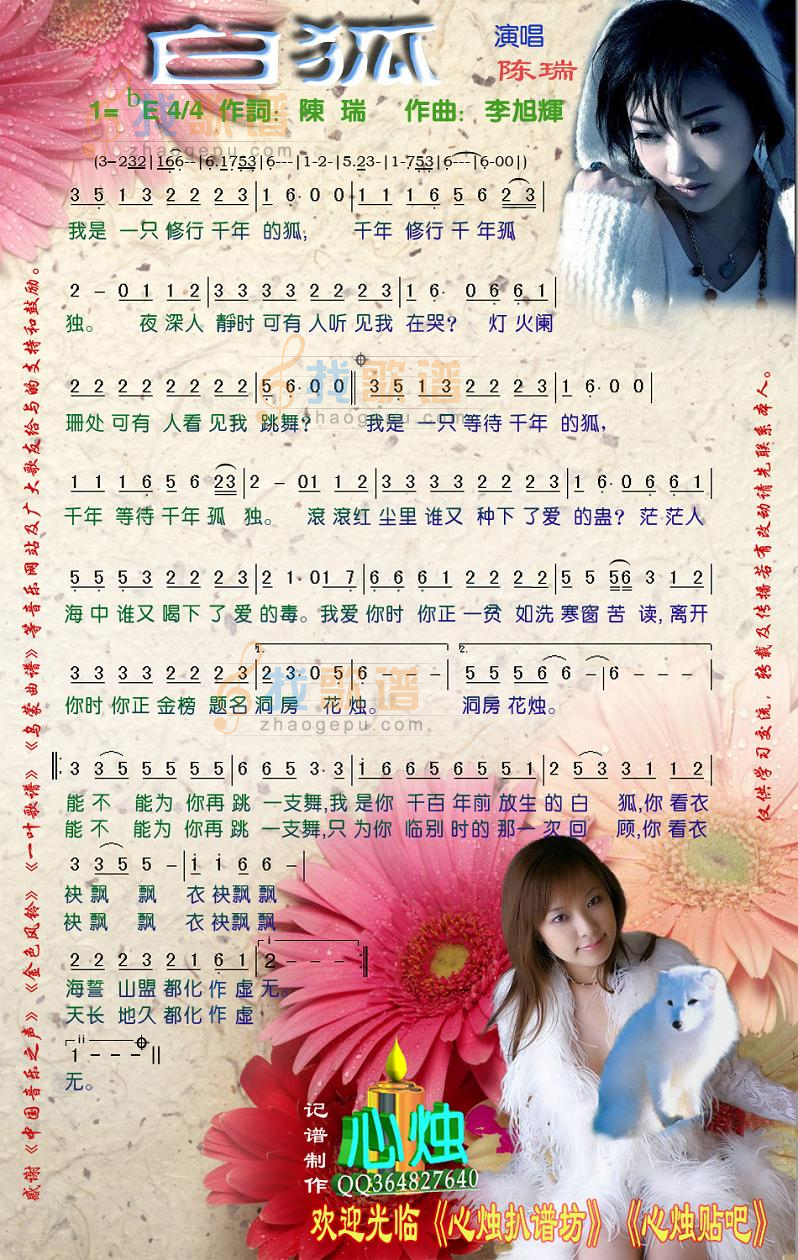 白狐
演唱
陈瑞
1= bE 4/4 作詞：陳 瑞 作曲：李旭輝
(3-232|166--|6.1753|6---|1-2-|5.23-|1-753|6---|6-00|)
3 5 1 3 2 2 2 3|1 6· 0 0|1 1 1 6 5 6 2 3|
我是 一只 修行 千年 的狐， 千年 修行 千 年孤
2 - 0 1 1 1 2|3 3 3 3 2 2 2 3|1 6· 0 6 6 1|
独。 夜 深人 靜时 可有 人听 见我 在哭？ 灯 火阑
2 2 2 2 2 2 2 2|5 6· 0 0||3 5 1 3 2 2 2 3|1 6· 0 0|
珊处 可有 人看 见我 跳舞？ 我是 一只 等待 千年 的狐，
1 1 1 6 5 6 23|2 - 01 1 2|3 3 3 3 2 2 2 3|1 6· 0 6 6 1|
千年 等待 千年 孤 独。 滚 滚红 尘里 谁又 种下 了爱 的蛊？茫 茫人
5 5 5 3 2 2 2 3|2 1·01 7|6 6 6 1 2 2 2 2|5 5 56 3 1 2|
海 中 谁又 喝下 了 爱 的毒。我爱 你时 你正 一贫 如洗 寒窗 苦 读，离开
1. 2.
3 3 3 3 2 2 2 3|2 3·0 5|6 - - -|5 5 5 6 6 -|6 - - -|
你时 你正 金榜 题名 洞 房 花 烛。 洞房 花烛。
‖: 3 3 5 5 5 5 5|6 6 5 3·3|1 6 6 5 6 5 5 1|2 5 3 3 1 1 2|
能 不 能为 你再 跳 一支舞,我 是你 千百 年前 放生 的 白 狐,你 看衣
能 不 能为 你再 跳 一支舞,只 为你 临别 时的 那一 次 回 顾,你 看衣
3 3 5 5 -|i i 6 6 -|
袂 飘 飘 衣 袂飘 飘
袂 飘 飘 衣 袂飘 飘
i
2 2 2 3 2 1 6 1|2 - - -:‖
海誓 山盟 都化 作 虚 无。
天长 地久 都化 作 虚
ii
1 - - -‖
无。
感谢《中国音乐之声》《金色风铃》《一叶歌谱》《乌蒙曲谱》等音乐网站及广大歌友给与的支持和鼓励。
仅供学习交流，转载及传播若有改动请先联系本人。
找歌谱
找歌谱
zhaogepu.com
找歌谱
zhaogepu.com
记谱制作
心烛
QQ364827640
欢迎光临《心烛扒谱坊》《心烛贴吧》